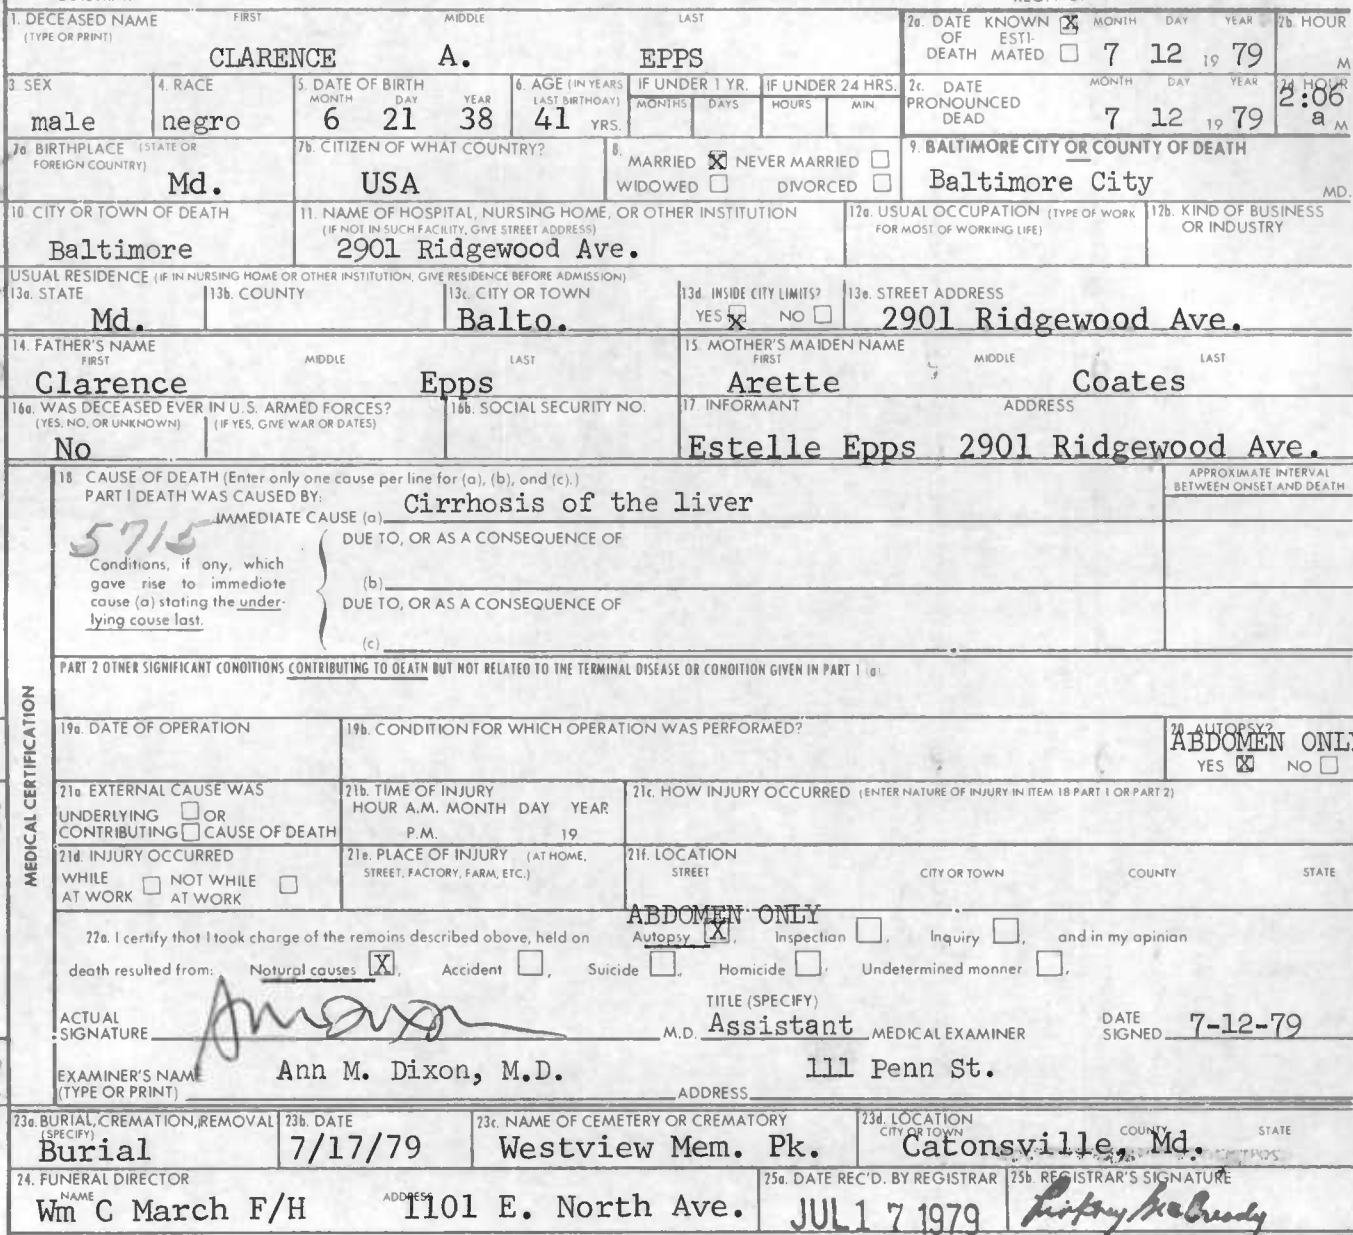 1. DECEASED NAME FIRST MIDDLE LAST
(TYPE OR PRINT)
CLARENCE A. EPPS
2a. DATE KNOWN X MONTH DAY YEAR
OF ESTI-
DEATH MATED 7 12 19 79
2b. HOUR
M
3. SEX
male
4. RACE
negro
5. DATE OF BIRTH
MONTH DAY YEAR
6 21 38
6. AGE (IN YEARS
LAST BIRTHDAY)
41 YRS.
IF UNDER 1 YR.
MONTHS DAYS
IF UNDER 24 HRS.
HOURS MIN.
2c. DATE MONTH DAY YEAR
PRONOUNCED
DEAD 7 12 19 79
2d HOUR
2:06
a M
7a BIRTHPLACE (STATE OR
FOREIGN COUNTRY)
Md.
7b. CITIZEN OF WHAT COUNTRY?
USA
8.
MARRIED X NEVER MARRIED
WIDOWED DIVORCED
9. BALTIMORE CITY OR COUNTY OF DEATH
Baltimore City MD.
10. CITY OR TOWN OF DEATH
Baltimore
11. NAME OF HOSPITAL, NURSING HOME, OR OTHER INSTITUTION
(IF NOT IN SUCH FACILITY, GIVE STREET ADDRESS)
2901 Ridgewood Ave.
12a. USUAL OCCUPATION (TYPE OF WORK
FOR MOST OF WORKING LIFE)
12b. KIND OF BUSINESS
OR INDUSTRY
USUAL RESIDENCE (IF IN NURSING HOME OR OTHER INSTITUTION, GIVE RESIDENCE BEFORE ADMISSION)
13a. STATE
Md.
13b. COUNTY
13c. CITY OR TOWN
Balto.
13d. INSIDE CITY LIMITS?
YES X NO
13e. STREET ADDRESS
2901 Ridgewood Ave.
14. FATHER'S NAME
FIRST MIDDLE LAST
Clarence Epps
15. MOTHER'S MAIDEN NAME
FIRST MIDDLE LAST
Arette Coates
16a. WAS DECEASED EVER IN U.S. ARMED FORCES?
(YES, NO, OR UNKNOWN) (IF YES, GIVE WAR OR DATES)
No
16b. SOCIAL SECURITY NO.
17. INFORMANT ADDRESS
Estelle Epps 2901 Ridgewood Ave.
MEDICAL CERTIFICATION
18 CAUSE OF DEATH (Enter only one cause per line for (a), (b), and (c).)
PART I DEATH WAS CAUSED BY:
IMMEDIATE CAUSE (a) Cirrhosis of the liver
APPROXIMATE INTERVAL
BETWEEN ONSET AND DEATH
5715
DUE TO, OR AS A CONSEQUENCE OF
Conditions, if any, which
gave rise to immediate
cause (a) stating the under-
lying cause last.
(b)
DUE TO, OR AS A CONSEQUENCE OF
(c)
PART 2 OTHER SIGNIFICANT CONDITIONS CONTRIBUTING TO DEATH BUT NOT RELATED TO THE TERMINAL DISEASE OR CONDITION GIVEN IN PART 1 (a)
19a. DATE OF OPERATION
19b. CONDITION FOR WHICH OPERATION WAS PERFORMED?
20 AUTOPSY?
ABDOMEN ONLY
YES X NO
21a EXTERNAL CAUSE WAS
UNDERLYING OR
CONTRIBUTING CAUSE OF DEATH
21b. TIME OF INJURY
HOUR A.M. MONTH DAY YEAR
P.M. 19
21c. HOW INJURY OCCURRED (ENTER NATURE OF INJURY IN ITEM 18 PART 1 OR PART 2)
21d. INJURY OCCURRED
WHILE NOT WHILE
AT WORK AT WORK
21e. PLACE OF INJURY (AT HOME,
STREET, FACTORY, FARM, ETC.)
21f. LOCATION
STREET CITY OR TOWN COUNTY STATE
ABDOMEN ONLY
22a. I certify that I took charge of the remains described above, held on Autopsy X, Inspection , Inquiry , and in my opinion
death resulted from: Natural causes X, Accident , Suicide , Homicide , Undetermined manner ,
ACTUAL
SIGNATURE M.D.
TITLE (SPECIFY)
Assistant MEDICAL EXAMINER
DATE
SIGNED 7-12-79
EXAMINER'S NAME
(TYPE OR PRINT) Ann M. Dixon, M.D.
ADDRESS 111 Penn St.
23a. BURIAL, CREMATION, REMOVAL
(SPECIFY)
Burial
23b. DATE
7/17/79
23c. NAME OF CEMETERY OR CREMATORY
Westview Mem. Pk.
23d. LOCATION
CITY OR TOWN COUNTY STATE
Catonsville, Md.
24. FUNERAL DIRECTOR
NAME ADDRESS
Wm C March F/H 1101 E. North Ave.
25a. DATE REC'D. BY REGISTRAR
JUL 17 1979
25b. REGISTRAR'S SIGNATURE